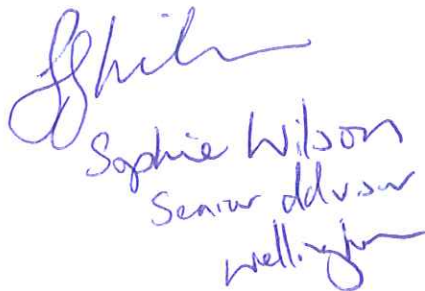 Sophie Wilson
Senior Advisor
Wellington